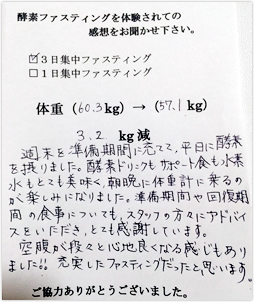 酵素ファスティングを体験されての
感想をお聞かせ下さい。
☑3日集中ファスティング
□1日集中ファスティング
体重(60.3kg) → (57.1 kg)
3.2 kg減
週末を準備期間に充てて、平日に酵素
を摂りました。酵素ドリンクもサポート食も水素
水もとても美味く、朝晩に体重計に乗るの
が楽しみになりました。準備期間や回復期
間の食事についても、スタッフの方々にアドバイ
スをいただき、とても感謝しています。
空腹が段々と心地良くなる感じもあり
ました!!充実したファスティングだったと思います
ご協力ありがとうございました。